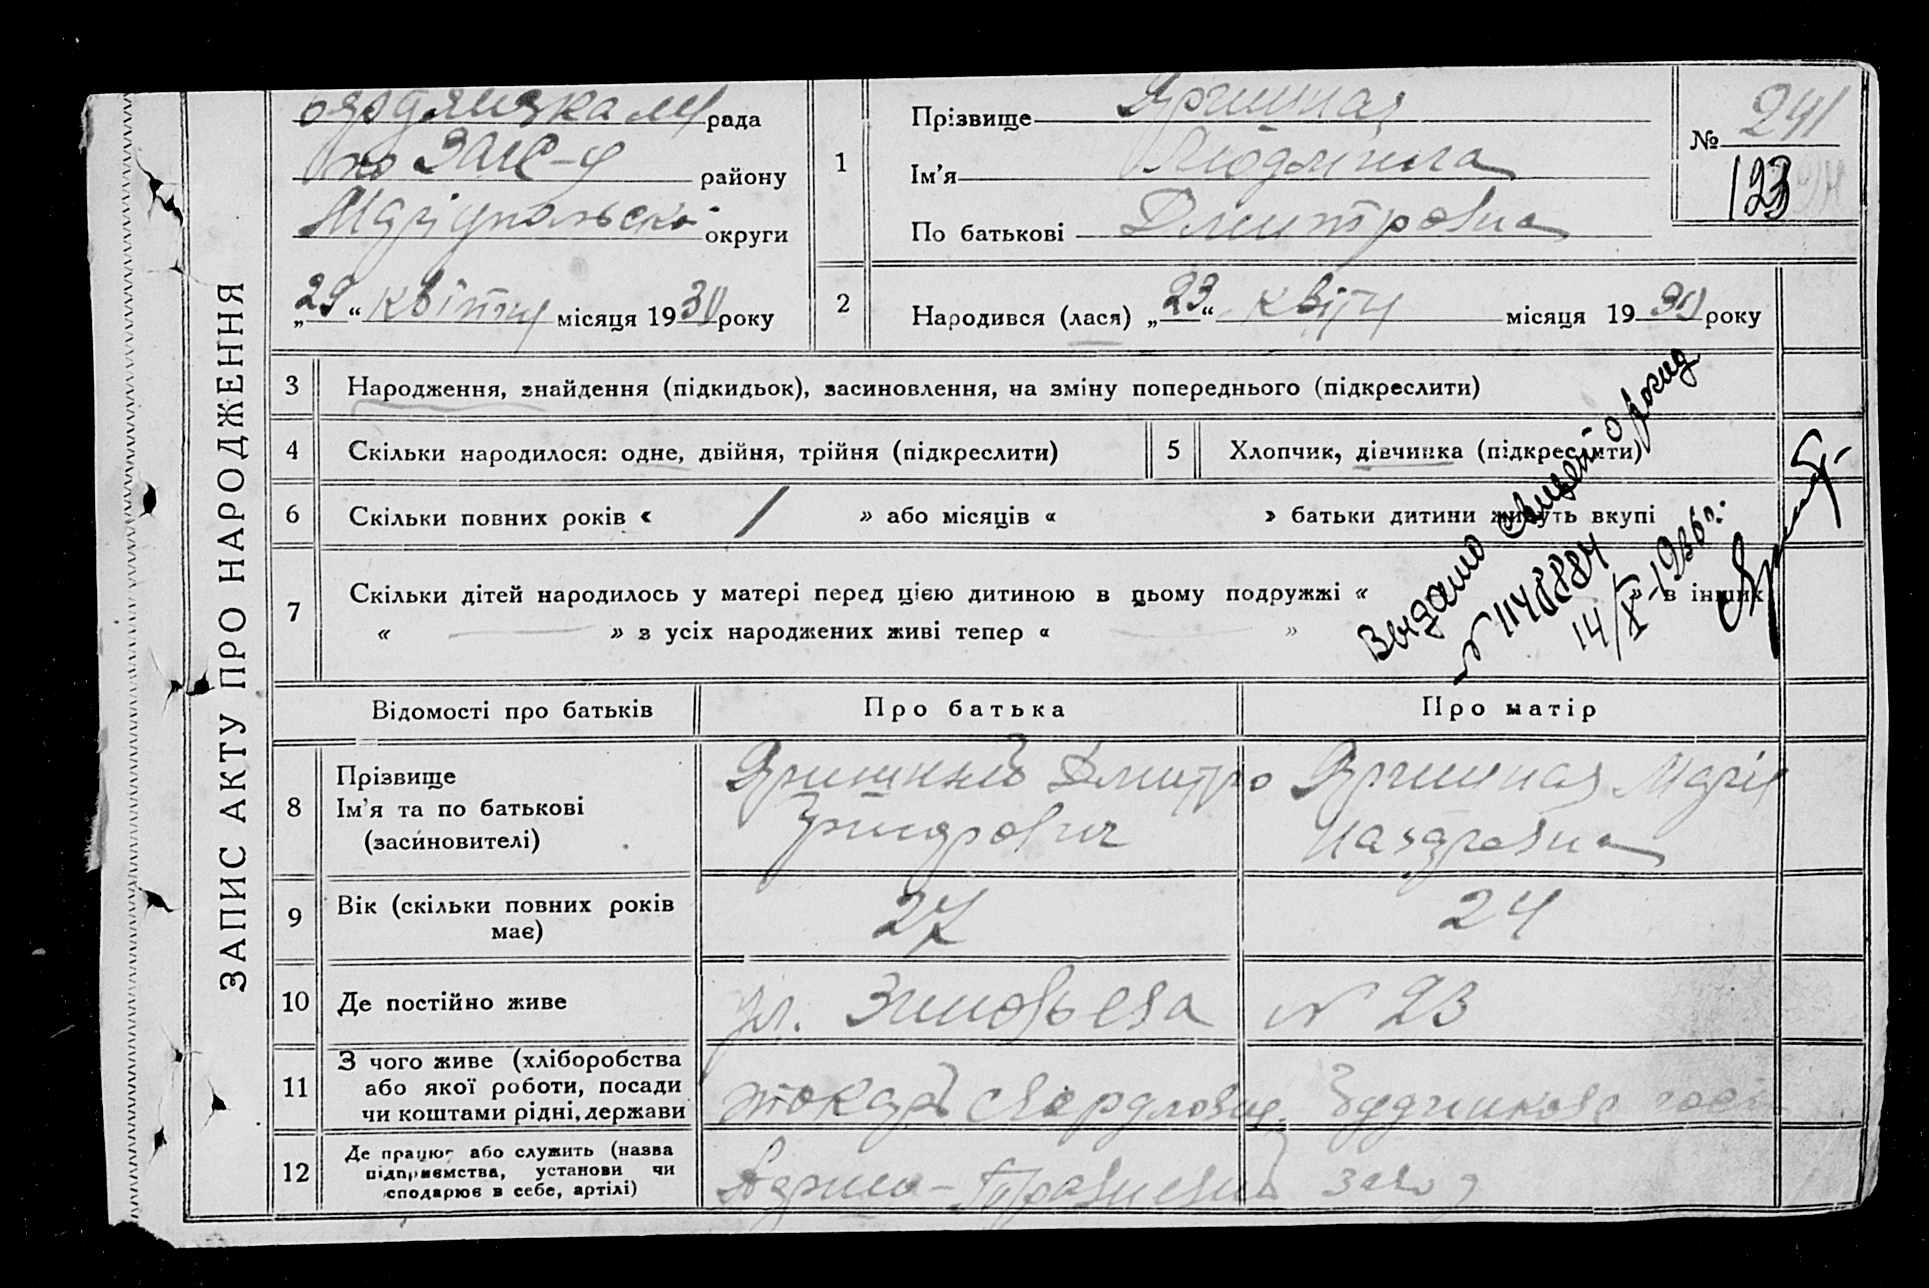 ЗАПИС АКТУ ПРО НАРОДЖЕННЯ
рада
по ЗАГС-у району
Маріупольськ округи
„29“ квітня місяця 1930 року
1
Прізвище
Ім’я Людміла
По батькові Дмитровна
№ 241
123
2
Народився (лася) „23“ квітн місяця 1930 року
3 Народження, знайдення (підкидьок), засиновлення, на зміну попереднього (підкреслити)
4 Скільки народилося: одне, двійня, трійня (підкреслити)
5 Хлопчик, дівчинка (підкреслити)
6 Скільки повних років « / » або місяців « » батьки дитини живуть вкупі
7 Скільки дітей народилось у матері перед цією дитиною в цьому подружжі « » в інших
« — » з усіх народжених живі тепер « — »
Выдано о рожд
№ 1148884
14/X-1936г.
Відомості про батьків
Про батька
Про матір
8 Прізвище
Ім’я та по батькові
(засиновителі)
Дмитро
Марія
Назаровна
9 Вік (скільки повних років
має)
27
24
10 Де постійно живе
ул. Зиновьева № 23
11 З чого живе (хліборобства
або якої роботи, посади
чи коштами рідні, держави
токарь
12 Де працює або служить (назва
підприємства, установи чи
сподарює в себе, артілі)
завод